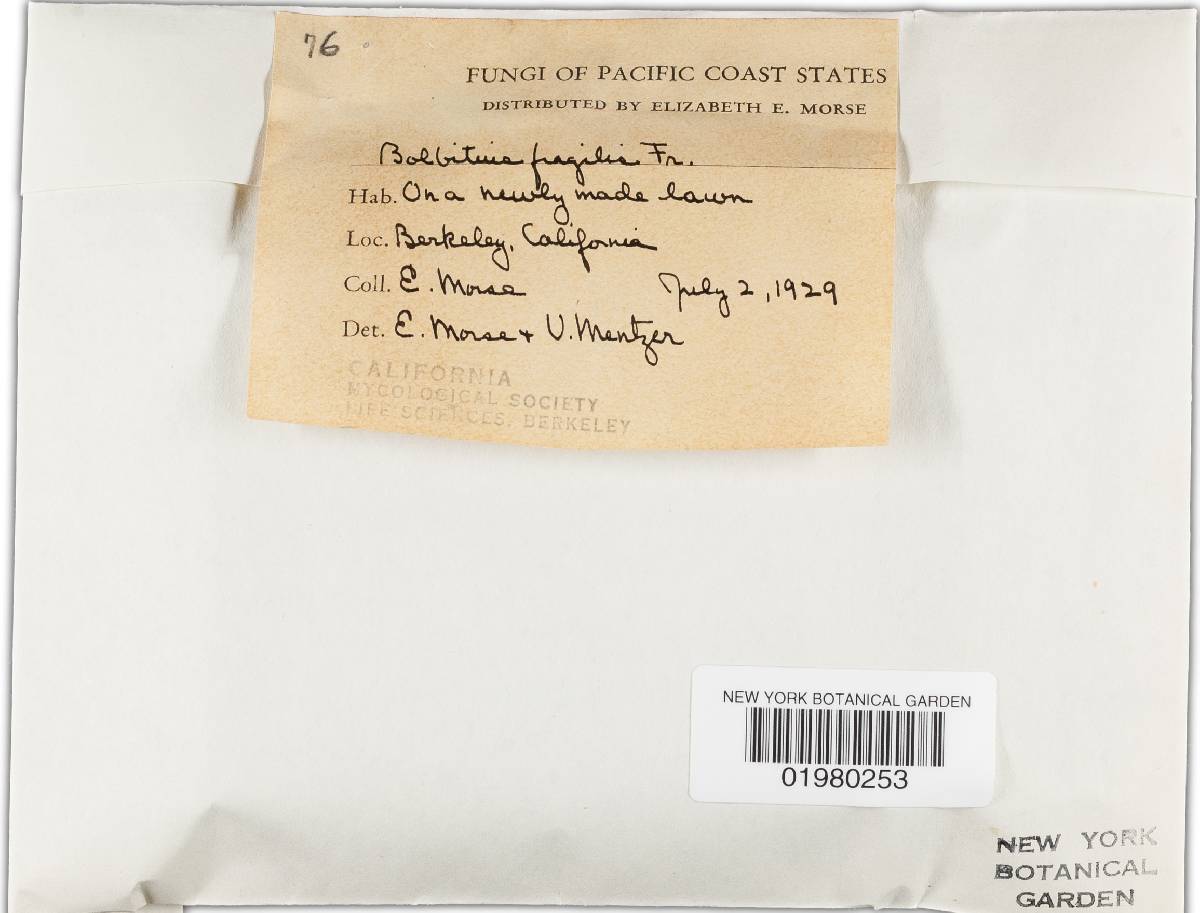 76
FUNGI OF PACIFIC COAST STATES
DISTRIBUTED BY ELIZABETH E. MORSE
Bolbitius fragilis Fr.
Hab. On a newly made lawn
Loc. Berkeley, California
Coll. E. Morse July 2, 1929
Det. E. Morse + V. Mentzer
CALIFORNIA
MYCOLOGICAL SOCIETY
LIFE SCIENCES, BERKELEY
NEW YORK BOTANICAL GARDEN
01980253
NEW YORK
BOTANICAL
GARDEN